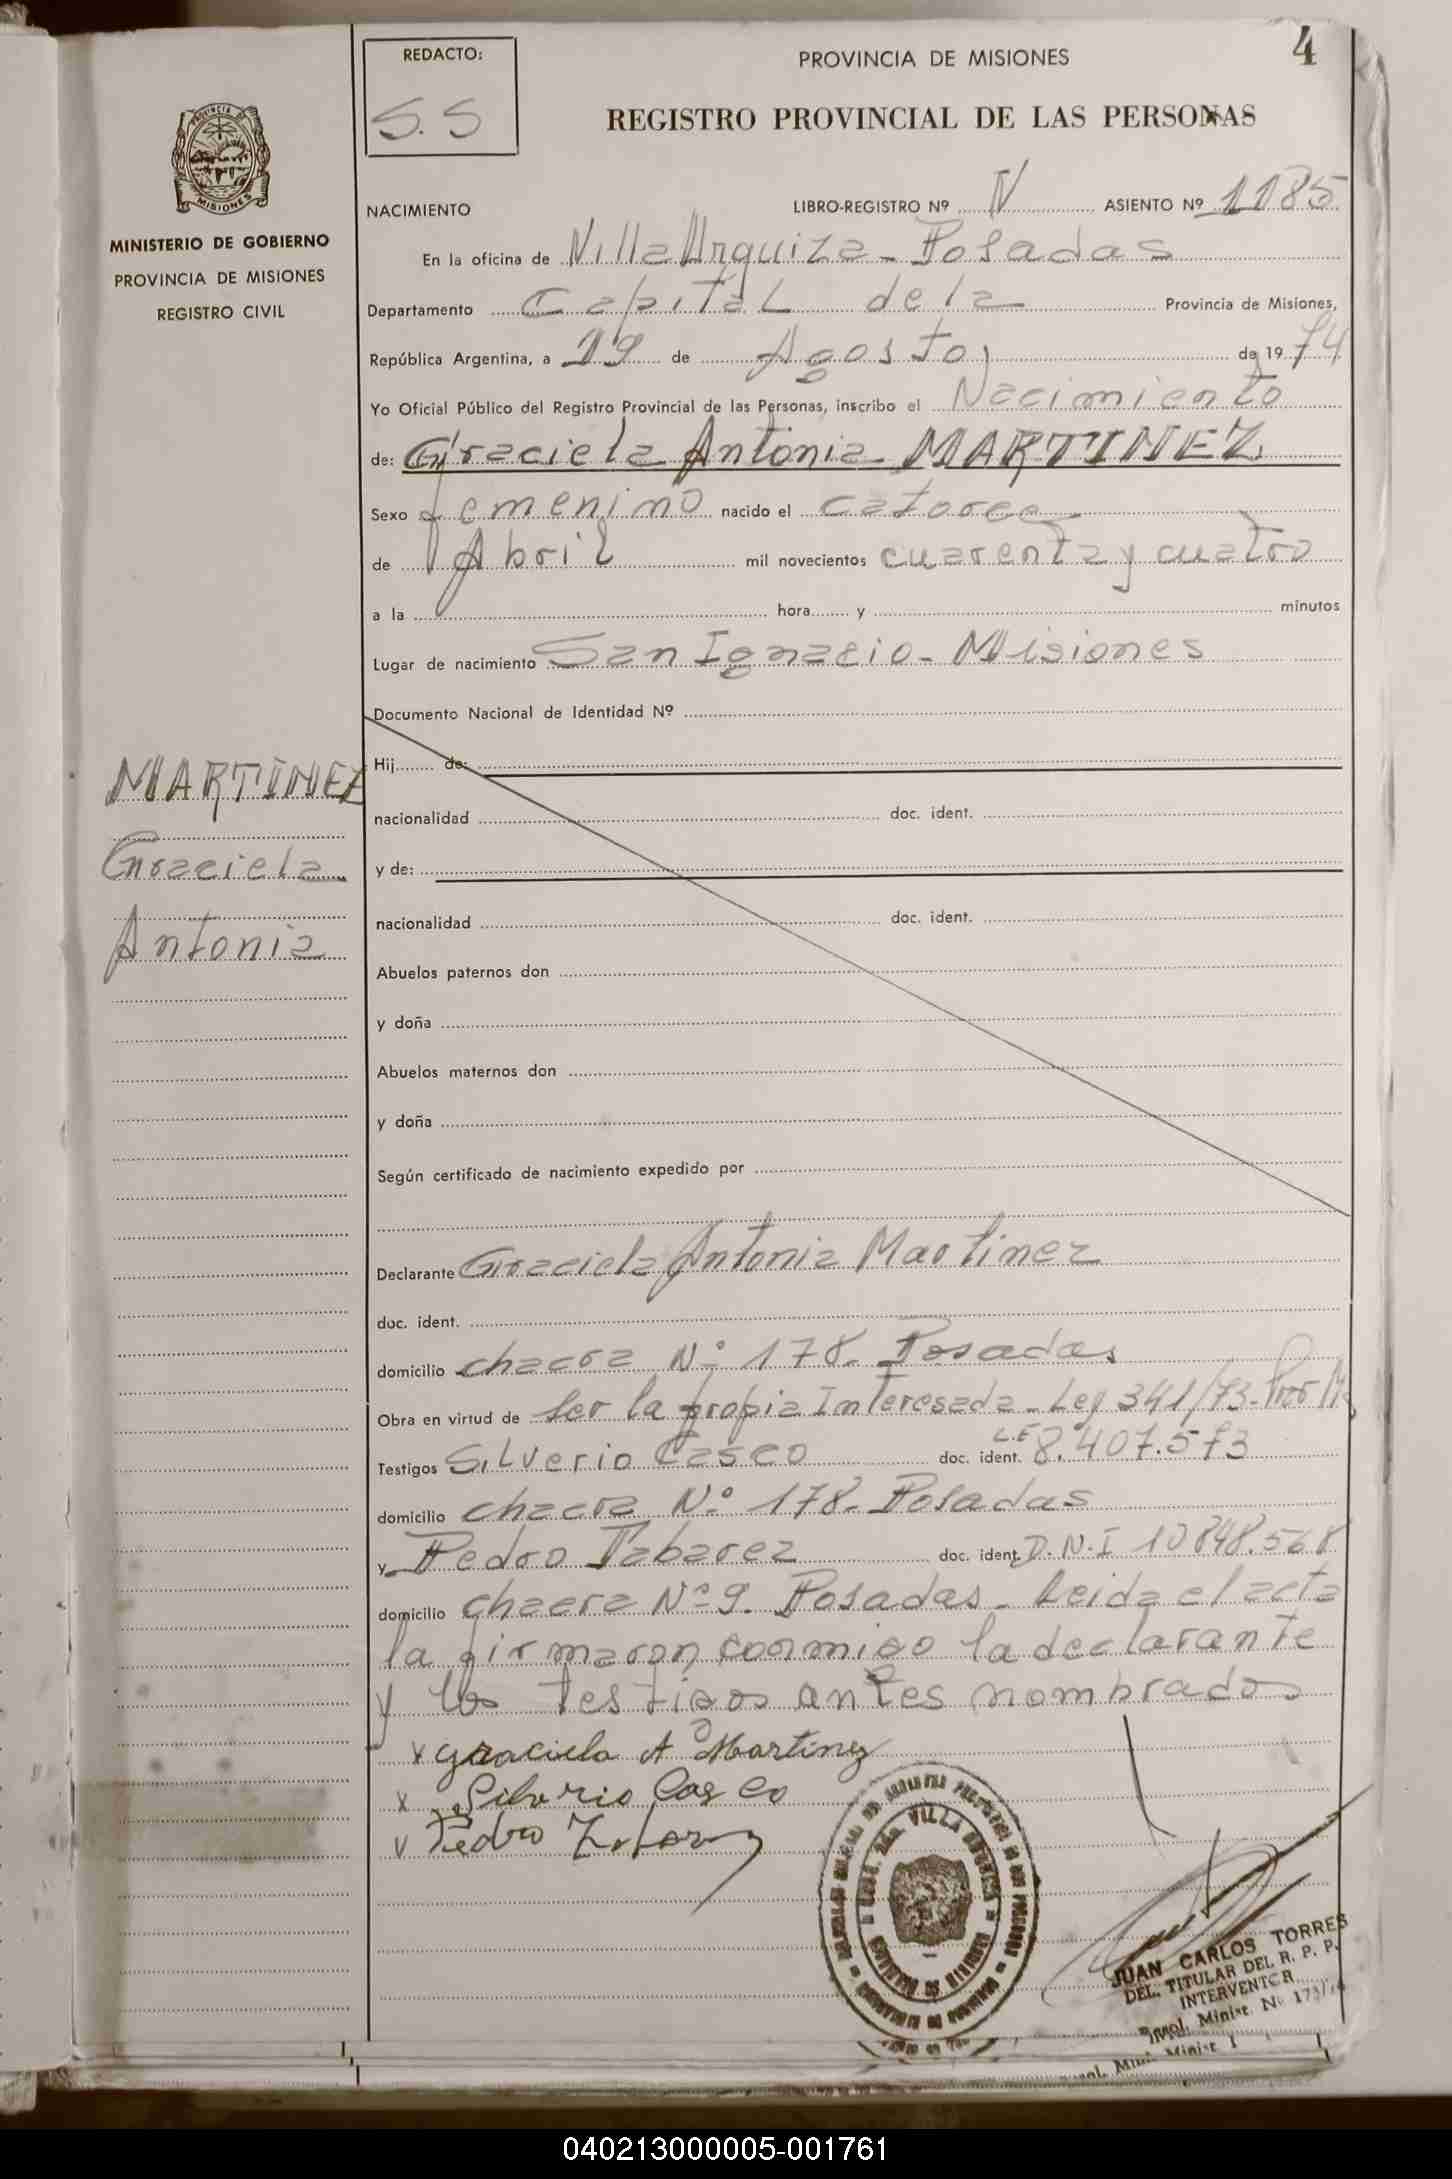 4
REDACTO:
S.S
PROVINCIA DE MISIONES
REGISTRO PROVINCIAL DE LAS PERSONAS
PROVINCIA DE
MISIONES
MINISTERIO DE GOBIERNO
PROVINCIA DE MISIONES
REGISTRO CIVIL
NACIMIENTO LIBRO-REGISTRO Nº IV ASIENTO Nº 1185
En la oficina de Villa Urquiza - Posadas
Departamento Capital de la Provincia de Misiones,
República Argentina, a 19 de Agosto, de 1974
Yo Oficial Público del Registro Provincial de las Personas, inscribo el Nacimiento
de: Graciela Antonia - MARTINEZ
Sexo femenino nacido el catorce
de Abril mil novecientos cuarenta y cuatro
a la hora y minutos
Lugar de nacimiento San Ignacio - Misiones
Documento Nacional de Identidad Nº
MARTINEZ
Graciela
Antonia
Hij de:
nacionalidad doc. ident.
y de:
nacionalidad doc. ident.
Abuelos paternos don
y doña
Abuelos maternos don
y doña
Según certificado de nacimiento expedido por
Declarante Graciela Antonia Martinez
doc. ident.
domicilio chacra Nº 178 - Posadas
Obra en virtud de ser la propia Interesada - Ley 341/73 -
Testigos Silverio Casco doc. ident. L.E 8.407.573
domicilio chacra Nº 178 - Posadas
y Pedro Tabarez doc. ident. D.N.I 10848.568
domicilio chacra Nº 9. Posadas - Leida el acta
la firmaron conmigo la declarante
y los testigos antes nombrados
x Graciela A Martinez
x Silverio Casco
v Pedro
VILLA URQUIZA
JUAN CARLOS TORRES
DEL. TITULAR DEL R. P. P.
INTERVENTOR
Resol. Minist. Nº
040213000005-001761